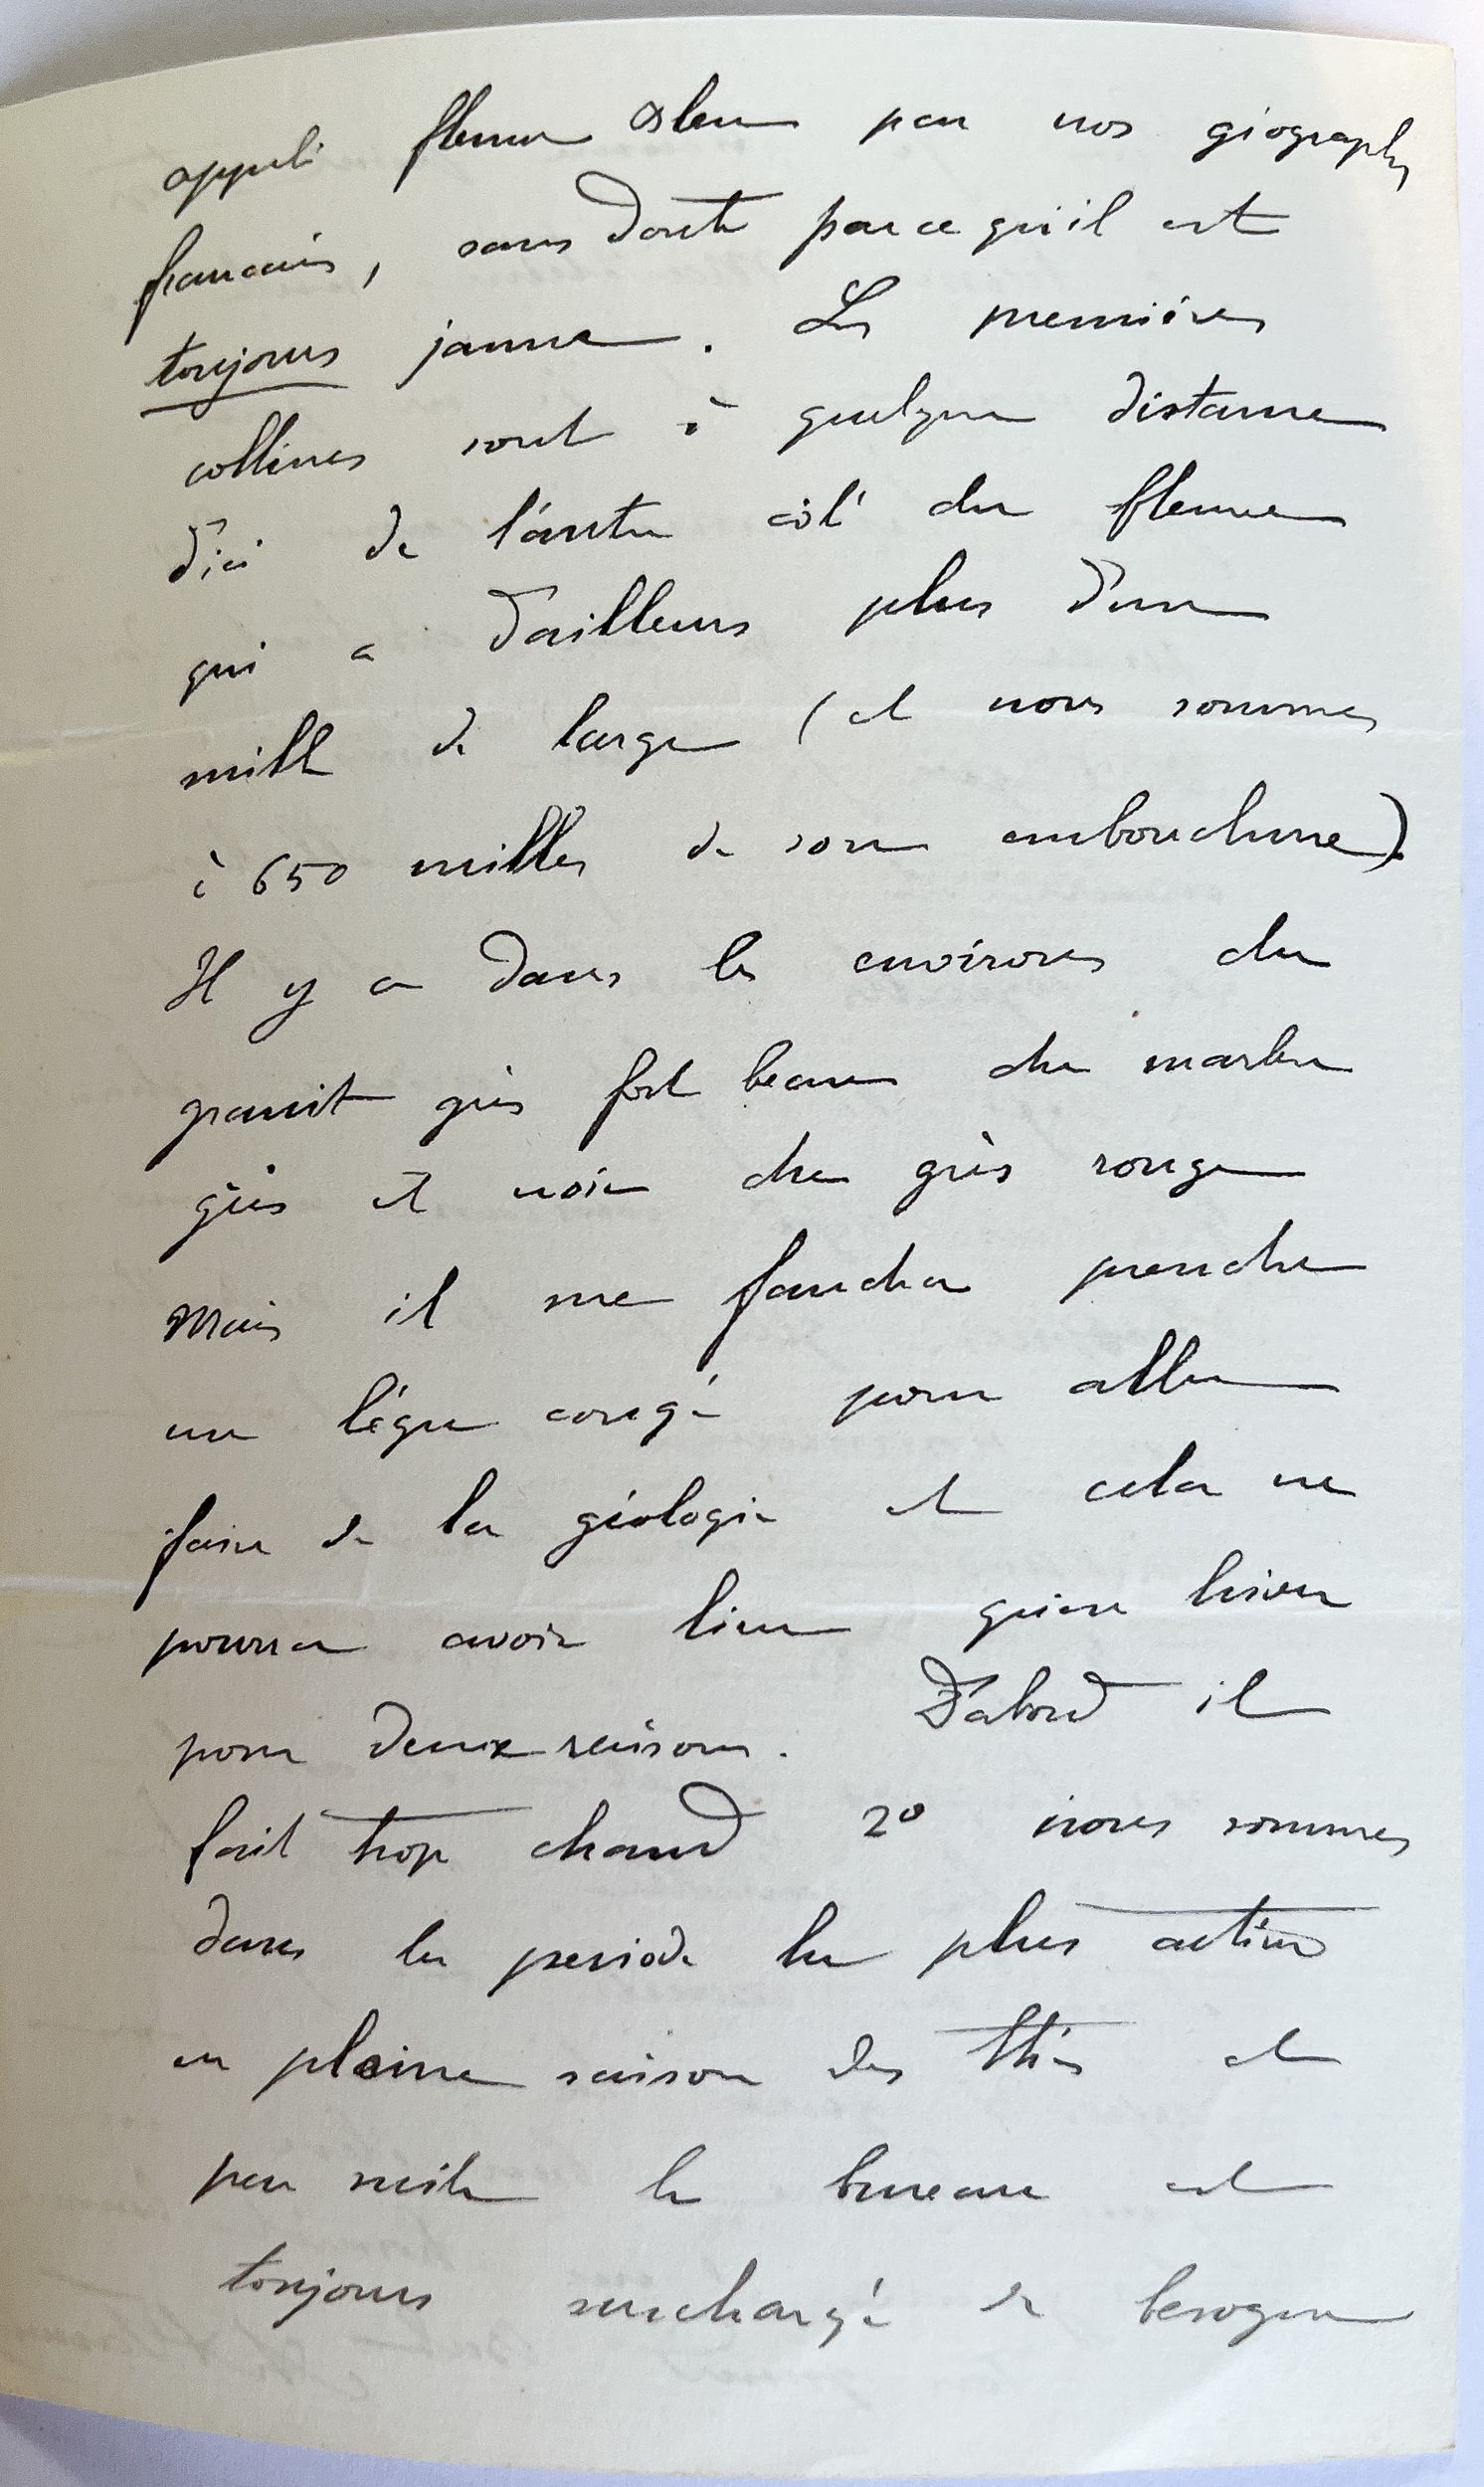 appelé fleuve Bleu par nos géographes
français, sans doute parce qu'il est
toujours jaune. Les premières
collines sont à quelque distance
d'ici de l'autre côté du fleuve
qui a d'ailleurs plus d'un
mille de large (et nous sommes
à 650 milles de son embouchure).
Il y a dans les environs du
granit gris fort beau du marbre
gris et noir du grès rouge
Mais il me faudra prendre
un léger congé pour aller
faire de la géologie et cela ne
pourra avoir lieu qu'en hiver
pour deux raisons. D'abord il
fait trop chaud 2º nous sommes
dans la periode la plus active
en pleine saison des thés et
par suite le bureau est
toujours surchargé de besogne